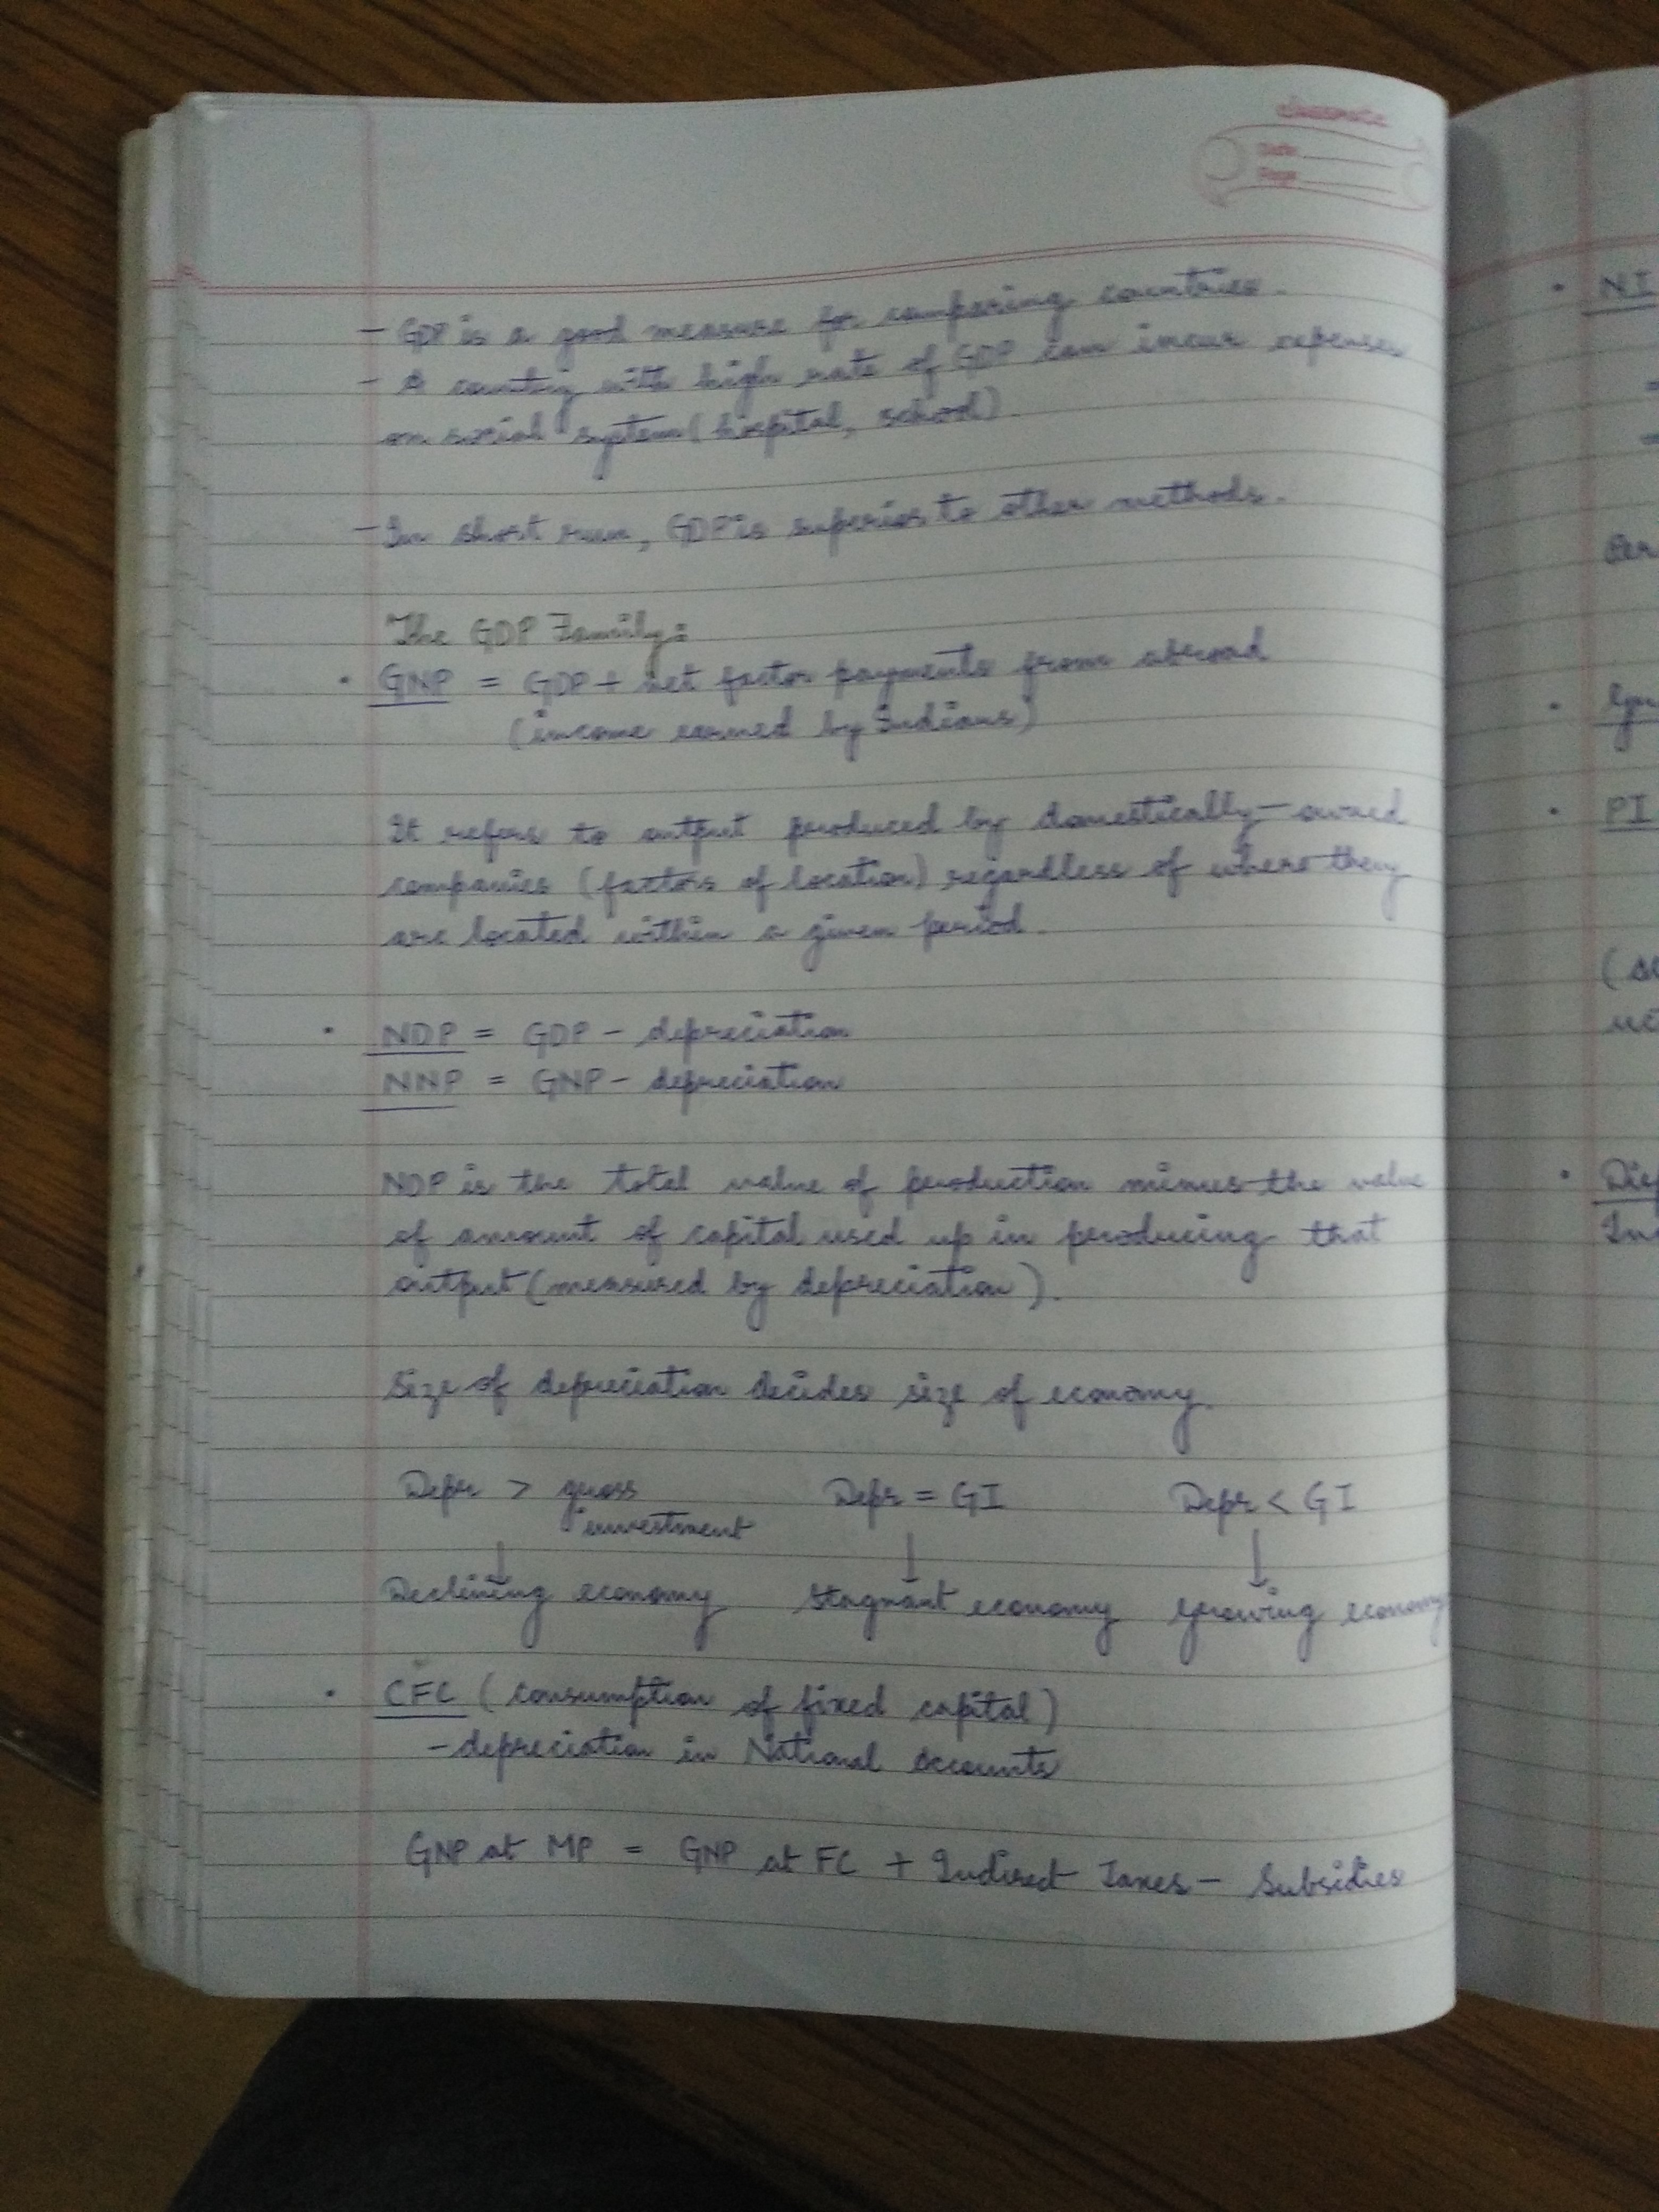 classmate
Date
Page
- GDP is a good measure for comparing countries.
- A country with high rate of GDP can incur expenses
on social system (hospital, school).
- In short run, GDP is superior to other methods.
The GDP Family:
• GNP = GDP + net factor payments from abroad
(income earned by Indians)
It refers to output produced by domestically-owned
companies (factors of location) regardless of where they
are located within a given period.
• NDP = GDP - depreciation
NNP = GNP - depreciation
NDP is the total value of production minus the value
of amount of capital used up in producing that
output (measured by depreciation).
Size of depreciation decides size of economy.
Depr > gross investment Depr = GI Depr < GI
↓ ↓ ↓
Declining economy Stagnant economy Growing economy
• CFC (consumption of fixed capital)
- depreciation in National Accounts
GNP at MP = GNP at FC + Indirect Taxes - Subsidies
• NI
=
• PI